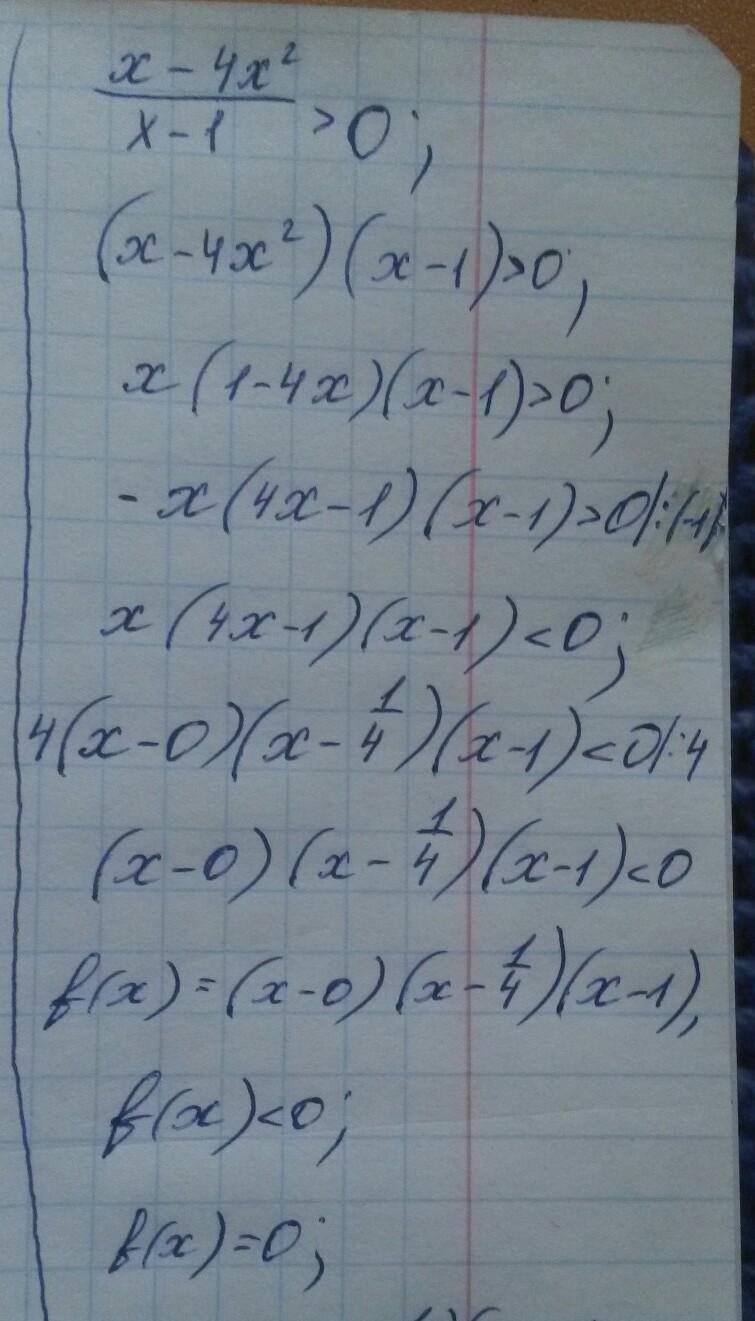 (x - 4x²)/(x - 1) > 0;
(x - 4x²)(x - 1) > 0;
x(1 - 4x)(x - 1) > 0;
- x(4x - 1)(x - 1) > 0 |:(-1)
x(4x - 1)(x - 1) < 0;
4(x - 0)(x - 1/4)(x - 1) < 0 |:4
(x - 0)(x - 1/4)(x - 1) < 0
f(x) = (x - 0)(x - 1/4)(x - 1),
f(x) < 0;
f(x) = 0;